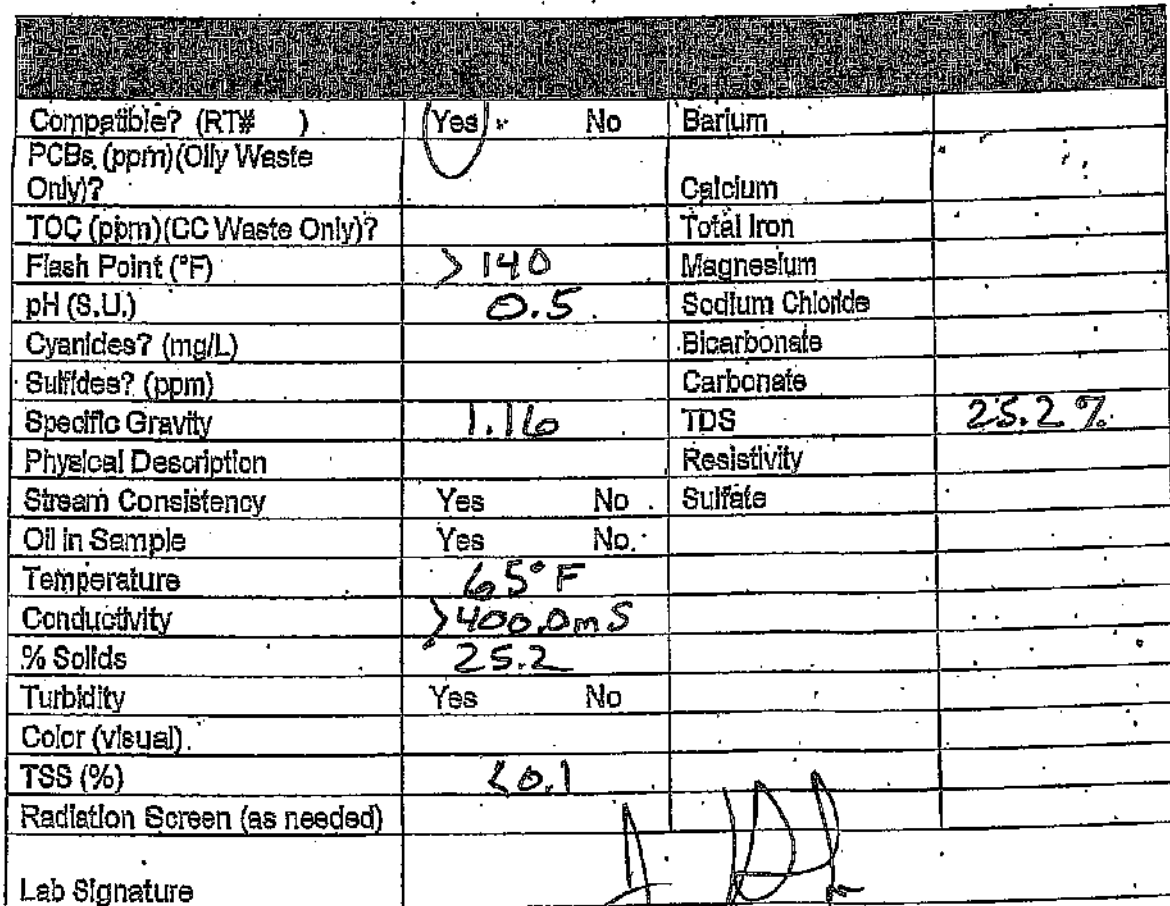 Compatible? (RT# ) Yes No Barium
PCBs (ppm)(Oily Waste
Only)? Calcium
TOC (ppm)(CC Waste Only)? Total Iron
Flash Point (°F) >140 Magnesium
pH (S.U.) 0.5 Sodium Chloride
Cyanides? (mg/L) Bicarbonate
Sulfides? (ppm) Carbonate
Specific Gravity 1.16 TDS 25.2%
Physical Description Resistivity
Stream Consistency Yes No Sulfate
Oil in Sample Yes No
Temperature 65°F
Conductivity >400.0mS
% Solids 25.2
Turbidity Yes No
Color (visual)
TSS (%) <0.1
Radiation Screen (as needed)
Lab Signature